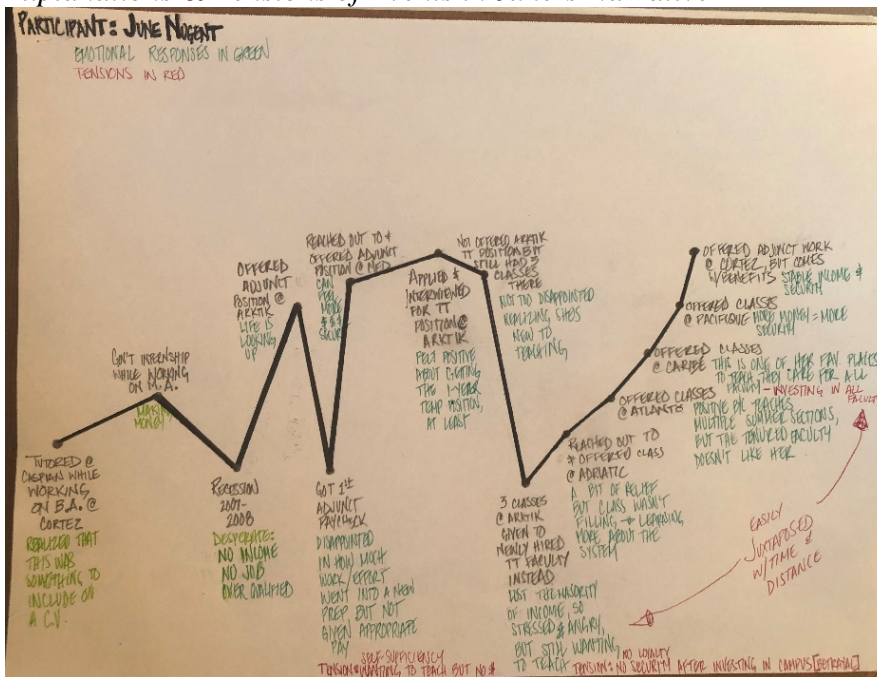 PARTICIPANT: JUNE NUGENT
EMOTIONAL RESPONSES IN GREEN
TENSIONS IN RED
TUTORED @
CASPIAN WHILE
WORKING
ON B.A. @
CORTEZ
REALIZED THAT
THIS WAS
SOMETHING TO
INCLUDE ON
A C.V.
GOV'T INTERNSHIP
WHILE WORKING
ON M.A.
MAKING
MONEY
RECESSION
2007-
2008
DESPERATE:
NO INCOME
NO JOB
OVER QUALIFIED
OFFERED
ADJUNCT
POSITION @
ARKTIK
LIFE IS
LOOKING
UP
GOT 1ST
ADJUNCT
PAYCHECK
DISAPPOINTED
IN HOW MUCH
WORK/EFFORT
WENT INTO A NEW
PREP, BUT NOT
GIVEN APPROPRIATE
PAY
SELF-SUFFICIENCY
TENSION: WANTING TO TEACH BUT NO $
REACHED OUT TO &
OFFERED ADJUNCT
POSITION @ MED
CAN
FEEL
MORE
$$$
APPLIED &
INTERVIEWED
FOR TT
POSITION @
ARKTIK
FELT POSITIVE
ABOUT GETTING
THE 1-YEAR
TEMP POSITION,
AT LEAST
NOT OFFERED ARKTIK
TT POSITION BUT
STILL HAD 3
CLASSES
THERE
NOT TOO DISAPPOINTED
REALIZING SHE'S
NEW TO
TEACHING
3 CLASSES
@ ARKTIK
GIVEN TO
NEWLY HIRED
TT FACULTY
INSTEAD
LOST THE MAJORITY
OF INCOME, SO
STRESSED & ANGRY,
BUT STILL WANTING
TO TEACH
NO LOYALTY
TENSION: NO SECURITY AFTER INVESTING IN CAMPUS [BETRAYAL]
REACHED OUT TO
& OFFERED CLASS
@ ADRIATIC
A BIT OF RELIEF
BUT CLASS WASN'T
FILLING → LEARNING
MORE ABOUT THE
SYSTEM
OFFERED CLASSES
@ ATLANTO
POSITIVE B/C TEACHES
MULTIPLE SUMMER SECTIONS,
BUT THE TENURED FACULTY
DOESN'T LIKE HER
OFFERED CLASSES
@ CARIBE THIS IS ONE OF HER FAV. PLACES
TO TEACH, THEY CARE FOR ALL
FACULTY - INVESTING IN ALL
OFFERED CLASSES
@ PACIFIQUE MORE MONEY = MORE
SECURITY
OFFERED ADJUNCT WORK
@ CORTEZ, BUT COMES
W/ BENEFITS STABLE INCOME &
SECURITY
EASILY
JUXTAPOSED
W/ TIME &
DISTANCE